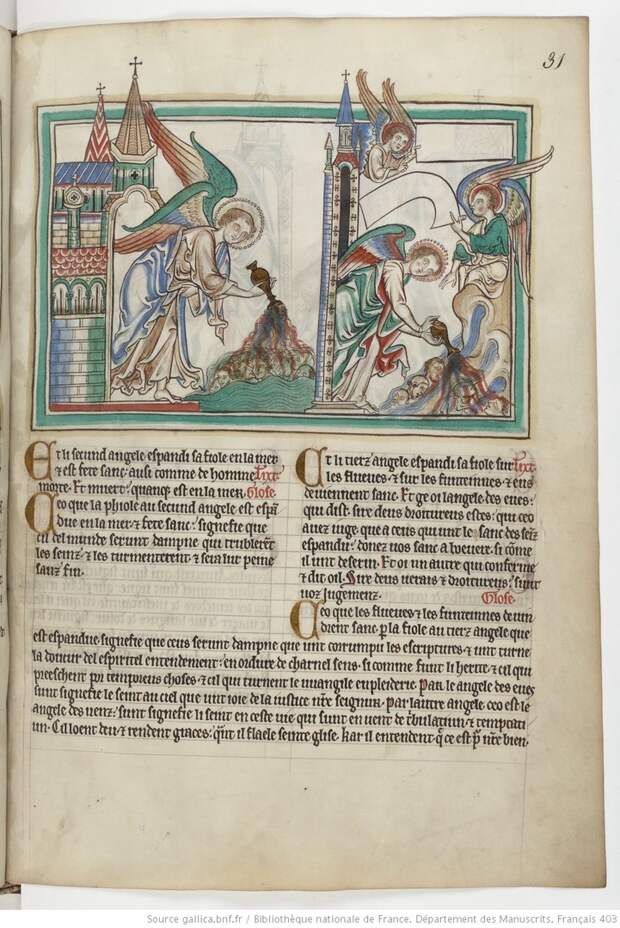 31
Et li secund angele espandi sa fiole en la mer
⁊ est fete sanc ausi comme de homme Tixt
morte. Et muert quanqe est en la mer. Glose
Ceo que la phiole au secund angele est espā
due en la mer ⁊ fete sanc: signefie que
cil del munde serunt dampne qui trublerēt
les seinz ⁊ les turmenterent ⁊ sera lur peine
sanz fin.
Et li tierz angele espandi sa fiole sur Tixt
les flueves ⁊ sur les funteinnes ⁊ eus
devienent sanc. Et ge oi langele des eues:
qui dist. sire deus droitureus estes: qui ceo
avez iuge. que a ceus qui unt le sanc des seīz
espandu: donez vos sanc a beivere. si cōme
il unt deservi. Et oi un autre qui conferme
⁊ dit oil. Sire deus verais ⁊ droitureus: sunt
voz jugemenz. Glose.
Ceo que les flueves ⁊ les funteinnes devin
drent sanc p la fiole au tierz angele que
est espandue signefie que ceus serunt dampne que unt corrumpu les escriptures ⁊ unt turne
la douceur del espiritel entendement: en ordure de charnel sens. si comme funt li herite ⁊ cil qui
preeschent por temporeus choses ⁊ cil qui turnent le evangile en pleiderie. Par le angele des eues
sunt signefie le seint au ciel que unt joie de la justice nr̄e seignur. Par lautre angele. ceo est le
angele des venz: sunt signefie li seint en ceste vie qui sunt en vent de tribulatiun ⁊ temptati
un. Cil loent deu ⁊ rendent graces: qānt il flaele seinte glise. kar il entendent q̄ ce est p̄ nr̄e bien.
Source gallica.bnf.fr / Bibliothèque nationale de France. Département des Manuscrits. Français 403